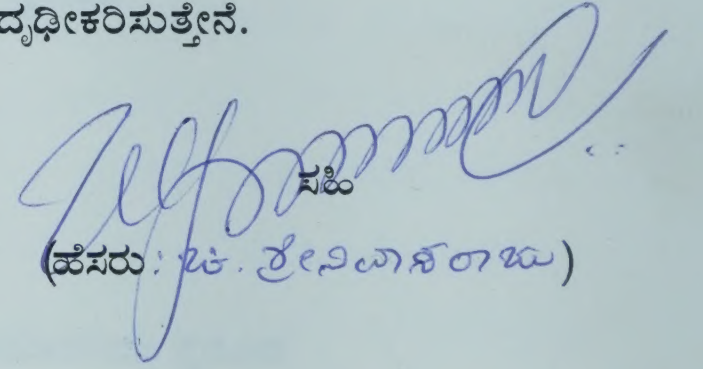 ದೃಢೀಕರಿಸುತ್ತೇನೆ.
ಸಹಿ
(ಹೆಸರು: ಚಿ. ಶ್ರೀನಿವಾಸರಾಜು)